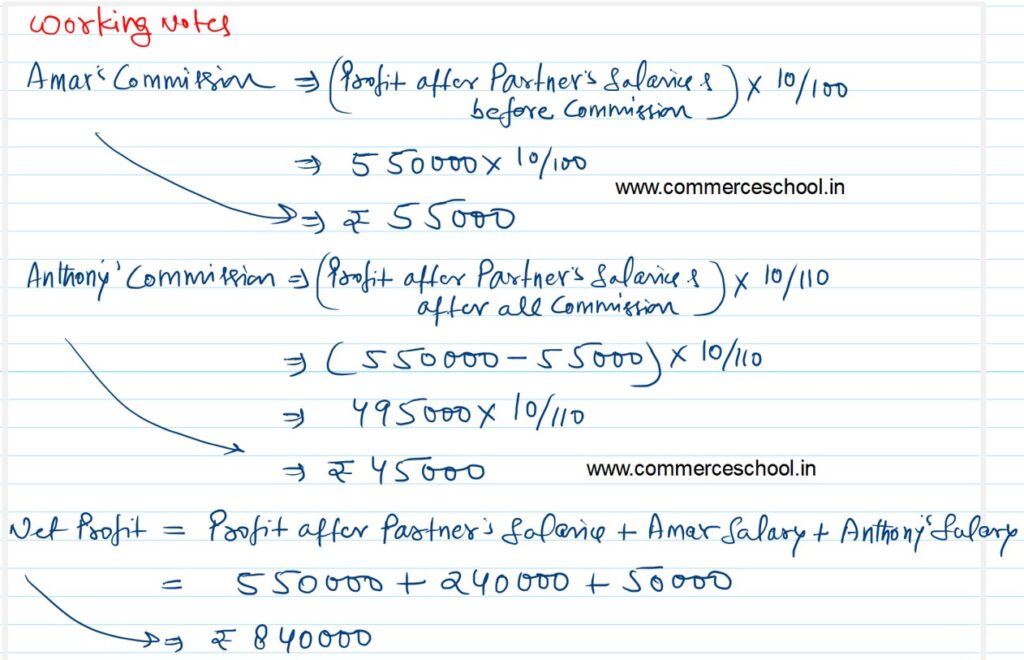 Working Notes
Amar's Commission ⇒ (Profit after Partner's Salaries &
before Commission) × 10/100
⇒ 550000 × 10/100
www.commerceschool.in
⇒ ₹ 55000
Anthony' Commission ⇒ (Profit after Partner's Salaries &
after all Commission) × 10/110
⇒ (550000 - 55000) × 10/110
⇒ 495000 × 10/110
⇒ ₹ 45000
www.commerceschool.in
Net Profit = Profit after Partner's Salarie + Amar Salary + Anthony's Salary
= 550000 + 240000 + 50000
⇒ ₹ 840000